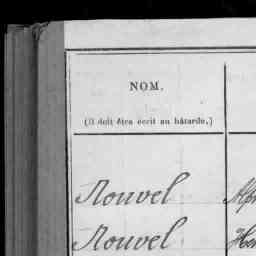 NOM.
(Il doit être écrit en bâtarde.)
Nouvel
Nouvel